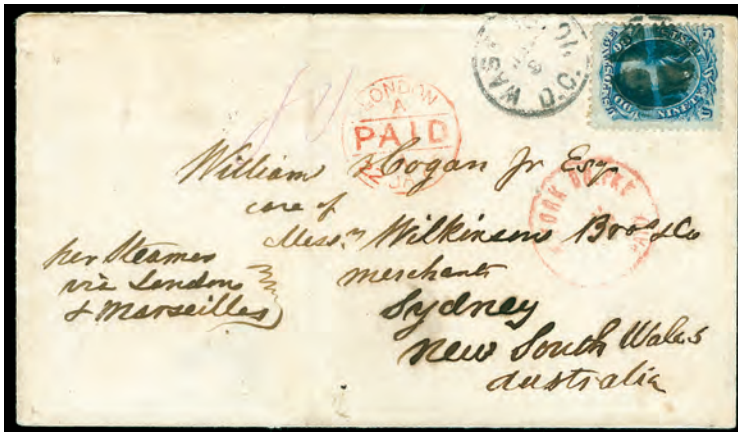 WAS
D.C.
LONDON
A
PAID
William Cogan Jr Esq
care of
Messrs Wilkinson Bros & Co
merchants
Sydney
New South Wales
Australia
per Steamer
via London
& Marseilles
YORK
PAID
U